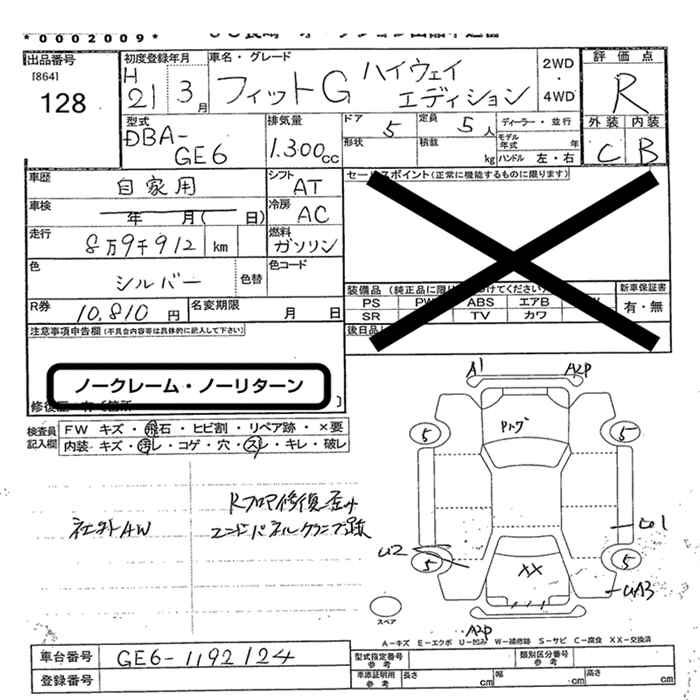 *0002009*
出品番号
[864]
128
初度登録年月
H 21 3月
車名・グレード
フィットG ハイウェイ エディション
2WD ・ 4WD
評価点
R
型式
DBA-GE6
排気量
1.300cc
ドア 5
定員 5人
形状
積載 kg
ディーラー・並行
モデル年式 年
ハンドル 左・右
外装 内装
C B
車歴 自家用
シフト AT
セールスポイント(正常に機能するものに限ります)
車検 年 月( 日)
冷房 AC
走行 8万9千912 km
燃料 ガソリン
色 シルバー 色替
色コード
装備品
新車保証書
PS ABS エアB
有・無
SR TV カワ
R券 10,810円
名変期限 月 日
後日品
注意事項申告欄(不具合内容等は具体的に記入して下さい)
ノークレーム・ノーリターン
検査員記入欄
FW キズ・飛石・ヒビ割・リペア跡・×要
内装・キズ・汚レ・コゲ・穴・スレ・キレ・破レ
社外AW
Rフロア修復歪み
エンドパネルクランプ跡
A1 A2P
Pトグ
5 5
U2
5 5
XX
UA3
スペア
A2P
A-キズ E-エクボ U-凹み W-補修跡 S-サビ C-腐食 XX-交換済
車台番号 GE6-1192124
型式指定番号 参考
類別区分番号 参考
登録番号
車庫証明用 参考 長さ cm 幅 cm 高さ cm